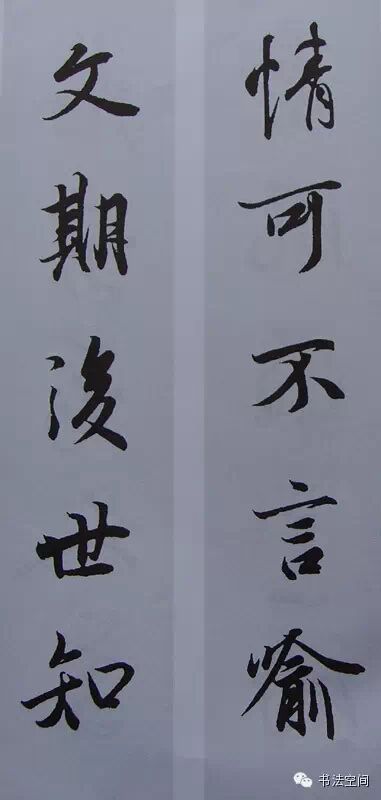 情可不言喻
文期後世知
书法空间